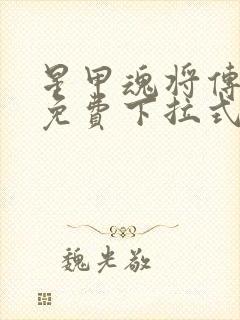 星甲魂将傳
免費下拉式
魏光敬